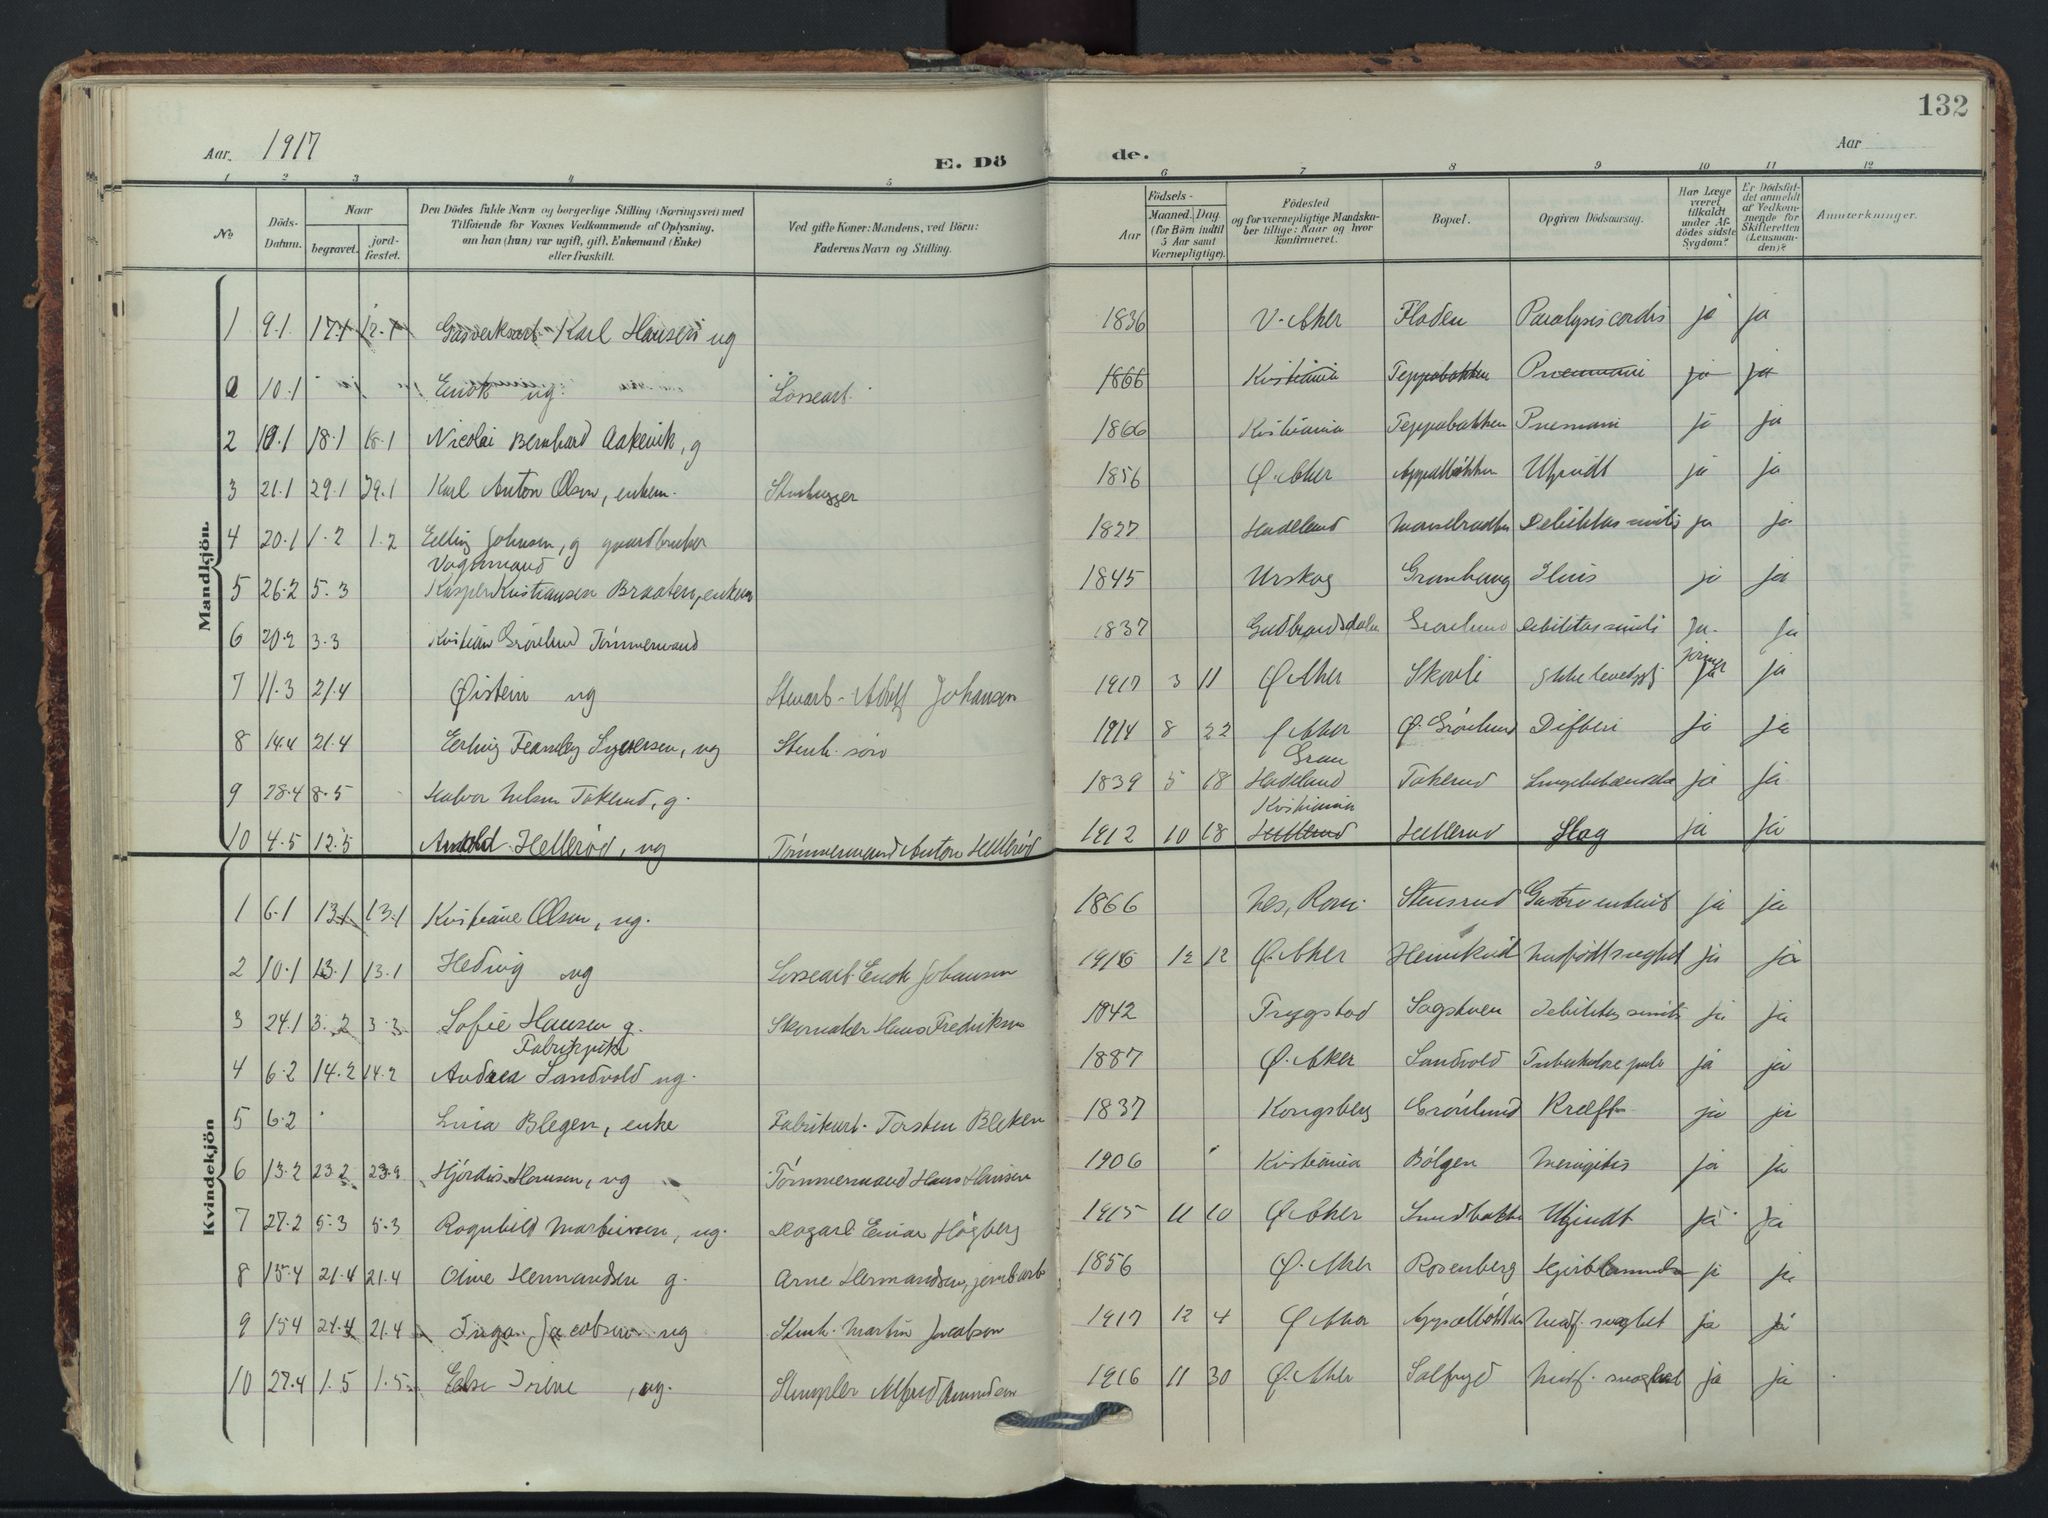 132
Aar. 1917
E. Döde.
Aar
1 2 3 4 5 6 7 8 9 10 11 12
No
Döds-Datum.
Naar
begravet. jordfæstet.
Den Dödes fulde Navn og borgerlige Stilling (Næringsvei) med Tilföiende for Voxnes Vedkommende af Oplysning, om han (hun) var ugift, gift, Enkemand (Enke) eller fraskilt.
Ved gifte Koner: Mandens, ved Börn: Faderens Navn og Stilling.
Födsels-
Aar
Maaned. Dag.
(for Börn indtil 5 Aar samt Værnepligtige).
Födested og for værnepligtige Mandskaber tillige: Naar og hvor konfirmeret.
Bopæl.
Opgiven Dödsaarsag.
Har Læge været tilkaldt under Afdödes sidste Sygdom?
Er Dödsfaldet anmeldt af Vedkommende for Skifteretten (Lensmanden)?
Anmærkninger.
Mandkjön.
1 9.1 17.1 Karl Hansen ug 1836 V. Aker Floden Paralysis cordis ja ja
10.1 Enok ug. Lossearb. 1866 Kristiania Teppabakken Pneumoni ja ja
2 18.1 18.1 Nicolai Bernhard Aakervik, g 1866 Kristiania Teppabakken Pnemoni ja ja
3 21.1 29.1 29.1 Karl Anton Olsen, enkem. Stenhugger 1856 Ø. Aker ja ja
4 20.1 1.2 1.2 Johnsen, g gaardbruker 1827 Hadeland Debilitas senilis ja ja
Vognmand
5 26.2 5.3 Kasper Kristiansen Braaten, enkem 1845 Urskog Granhaug Ileus ja ja
6 20.2 3.3 Kristian Grönlund Tömmermand 1837 Gudbrandsdalen Grönlund Debilitas senilis ja ja
7 11.3 21.4 Øistein ug Stenarb. Adolf Johansen 1917 3 11 Ø. Aker Skovli ja
8 14.4 21.4 Erling Fearnley Syversen, ug Stenh. sön 1914 8 22 Ø. Aker Ø. Grönlund Difteri ja ja
Gran
9 28.4 8.5 Halvor Nelsen Takerud, g. 1839 5 18 Hadeland Takerud Lungebetændelse ja ja
Kristiania
10 4.5 12.5 Arnold Hellerød, ug Tömmermand Anton Hellerød 1912 10 18 Hellerud Hellerud Slag ja ja
Kvindekjön
1 6.1 13.1 13.1 Kristiane Olsen, ug. 1866 Nes, Rom. Stensrud ja ja
2 10.1 13.1 13.1 Hedvig ug Lossearb Enok Johansen 1916 12 12 Ø. Aker Medfödt svaghet ja ja
3 24.1 3.2 3.3 Sofie Hansen g. Skomaker Hans Fredriksen 1842 Trygstad Sagstuen debilitas senilis ja ja
Fabrikpike
4 6.2 14.2 14.2 Andrea Sandvold ug. 1887 Ø. Aker Sandvold Tuberkulose pulm ja ja
5 6.2 Lina Blegen, enke Fabrikarb. Torsten Bleken 1837 Kongsberg Grönlund Kræft ja ja
6 13.2 23.2 23.2 Hjördis Hansen, ug Tömmermand Hans Hansen 1906 Kristiania Bölgen Meningitis ja ja
7 27.2 5.3 5.3 Ragnhild Martinsen, ug. Dagarb Einar Högberg 1915 11 10 Ø. Aker ja ja
8 15.4 21.4 21.4 Oline Hermandsen g. Arne Hermandsen, jernb.arb 1856 Ø. Aker Rosenberg ja ja
9 15.4 21.4 21.4 Inga Jacobsen ug Stenh. Martin Jacobsen 1917 12 4 Ø. Aker Medf. svaghet ja ja
10 27.4 1.5 1.5 Irene, ug. Alfred Amundsen 1916 11 30 Ø. Aker Solfryd Medf. svaghet ja ja